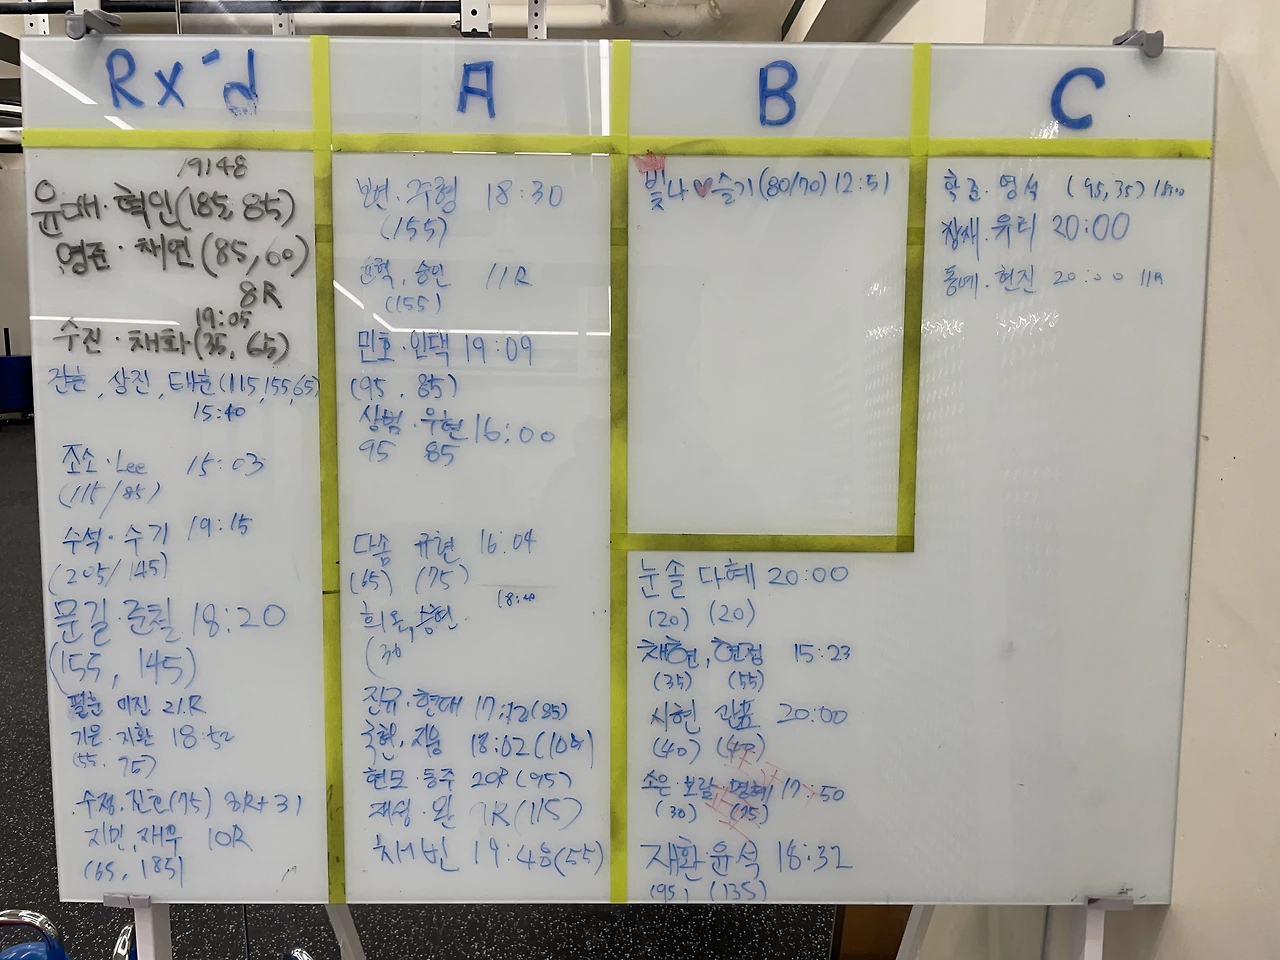 Rx'd
19:48
윤대·혁인(185, 85)
영준·채연(85, 60)
8R
19:05
수진·채화(35, 65)
, 상진, 태훈(115,155,65)
15:40
조소·Lee 15:03
(115/85)
수석·수기 19:15
(205/145)
문길·준철 18:20
(155, 145)
필훈 이진 21.R
기운·지환 18:52
(55. 75)
(75) 8R+31
지민, 재우 10R
(65, 185)
A
주형 18:30
(155)
윤혁, 승인 11R
(155)
민호·인택 19:09
(95, 85)
상범·우현 16:00
95 85
다솜 규현 16:04
(65) (75)
희온, 승현 18:40
(30
진유·현대 17:12(85)
국현, 지웅 18:02(105)
현모·동주 20R(95)
재성·완 7R(115)
채빈 19:48(55)
B
빛나♥슬기(80/70) 12:51
눈솔 다혜 20:00
(20) (20)
채현, 현정 15:23
(35) (55)
시현 관표 20:00
(40) (40)
소은·보람·명혜 17:50
(30) (75)
재환 윤석 18:32
(95) (135)
C
학준·영석 (95,35)
창재·유리 20:00
동예·현진 20:00 11R